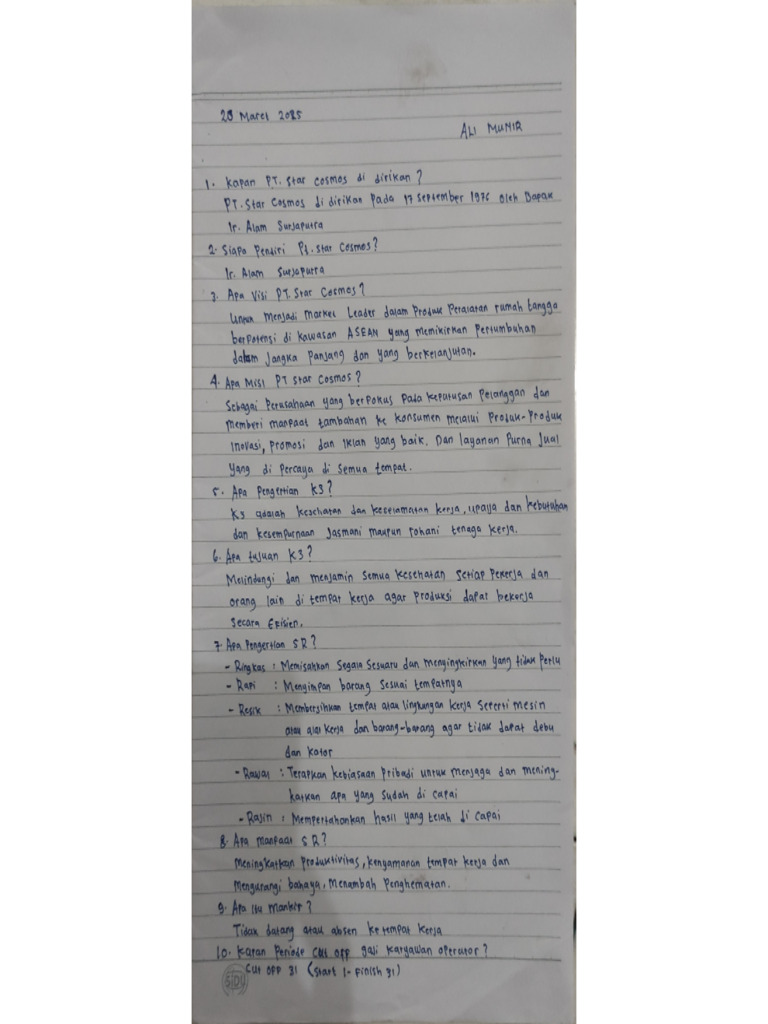 20 Maret 2025
ALI MUNIR
1. Kapan P.T. Star Cosmos di dirikan ?
PT. Star Cosmos di dirikan Pada 17 September 1976 oleh Bapak
Ir. Alam Surjaputra
2. Siapa Pendiri Pt. Star Cosmos ?
Ir. Alam Surjaputra
3. Apa Visi PT. Star Cosmos ?
Untuk Menjadi Market Leader dalam Produk Peralatan rumah tangga
berpotensi di kawasan ASEAN yang memikirkan Pertumbuhan
dalam Jangka Panjang dan yang berkelanjutan.
4. Apa Misi PT Star Cosmos ?
Sebagai Perusahaan yang berfokus Pada kepuasan Pelanggan dan
memberi manfaat tambahan ke konsumen melalui Produk-Produk
Inovasi, Promosi dan Iklan yang baik. Dan layanan Purna Jual
Yang di Percaya di Semua tempat.
5. Apa Pengertian K3 ?
K3 adalah kesehatan dan keselamatan kerja, upaya dan kebutuhan
dan kesempurnaan Jasmani maupun rohani tenaga kerja.
6. Apa tujuan K3 ?
Melindungi dan menjamin Semua kesehatan Setiap Pekerja dan
orang lain di tempat kerja agar Produksi dapat bekerja
Secara Efisien.
7. Apa Pengertian 5R ?
- Ringkas : Memisahkan Segala Sesuatu dan menyingkirkan yang tidak Perlu
- Rapi : Mengimpan barang Sesuai tempatnya
- Resik : Membersihkan tempat atau lingkungan kerja Seperti mesin
atau alat kerja dan barang-barang agar tidak dapat debu
dan kotor
- Rawat : Terapkan kebiasaan Pribadi untuk menjaga dan mening-
katkan apa yang Sudah di capai
- Rajin : Mempertahankan hasil yang telah di capai
8. Apa manfaat 5R ?
Meningkatkan Produktivitas, kenyamanan tempat kerja dan
Mengurangi bahaya, Menambah Penghematan.
9. Apa itu Mankir ?
Tidak datang atau absen ke tempat kerja
10. Kapan Periode Cut off gaji karyawan operator ?
Cut off 31 (Start 1 - Finish 31)
SIDU